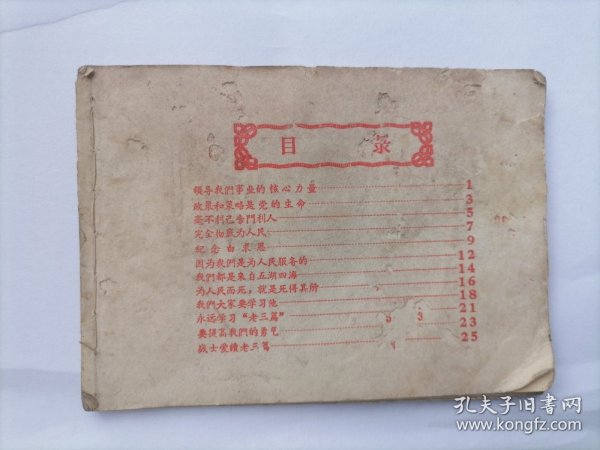 目 录
领导我們事业的核心力量 1
政策和策略是党的生命 3
毫不利己专門利人 5
完全彻底为人民 7
紀念白求恩 9
因为我們是为人民服务的 12
我們都是来自五湖四海 14
为人民而死，就是死得其所 16
我們大家要学习他 18
永远学习“老三篇” 21
要提高我們的勇气 23
战士爱讀老三篇 25
孔夫子旧书网
www.kongfz.com